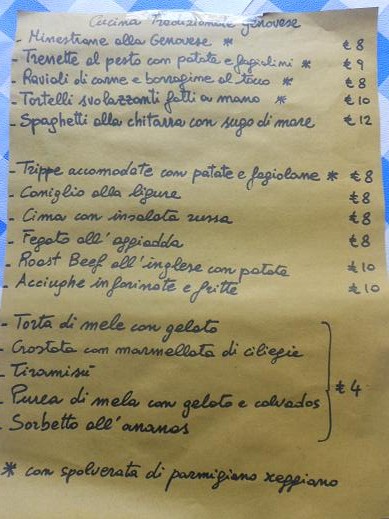 Cucina Tradizionale Genovese
- Minestrone alla Genovese * € 8
- Trenette al pesto con patate e fagiolini * € 9
- Ravioli di carne e borragine al tocco * € 8
- Tortelli svolazzanti fatti a mano * € 10
- Spaghetti alla chitarra con sugo di mare € 12
- Trippe accomodate con patate e fagiolane * € 8
- Coniglio alla ligure € 8
- Cima con insalata russa € 8
- Fegato all'aggiadda € 8
- Roast Beef all'inglese con patate € 10
- Acciughe infarinate e fritte € 10
- Torta di mele con gelato
- Crostata con marmellata di ciliegie
- Tiramisú
- Purea di mela con gelato e calvados € 4
- Sorbetto all'ananas
* con spolverata di parmigiano reggiano